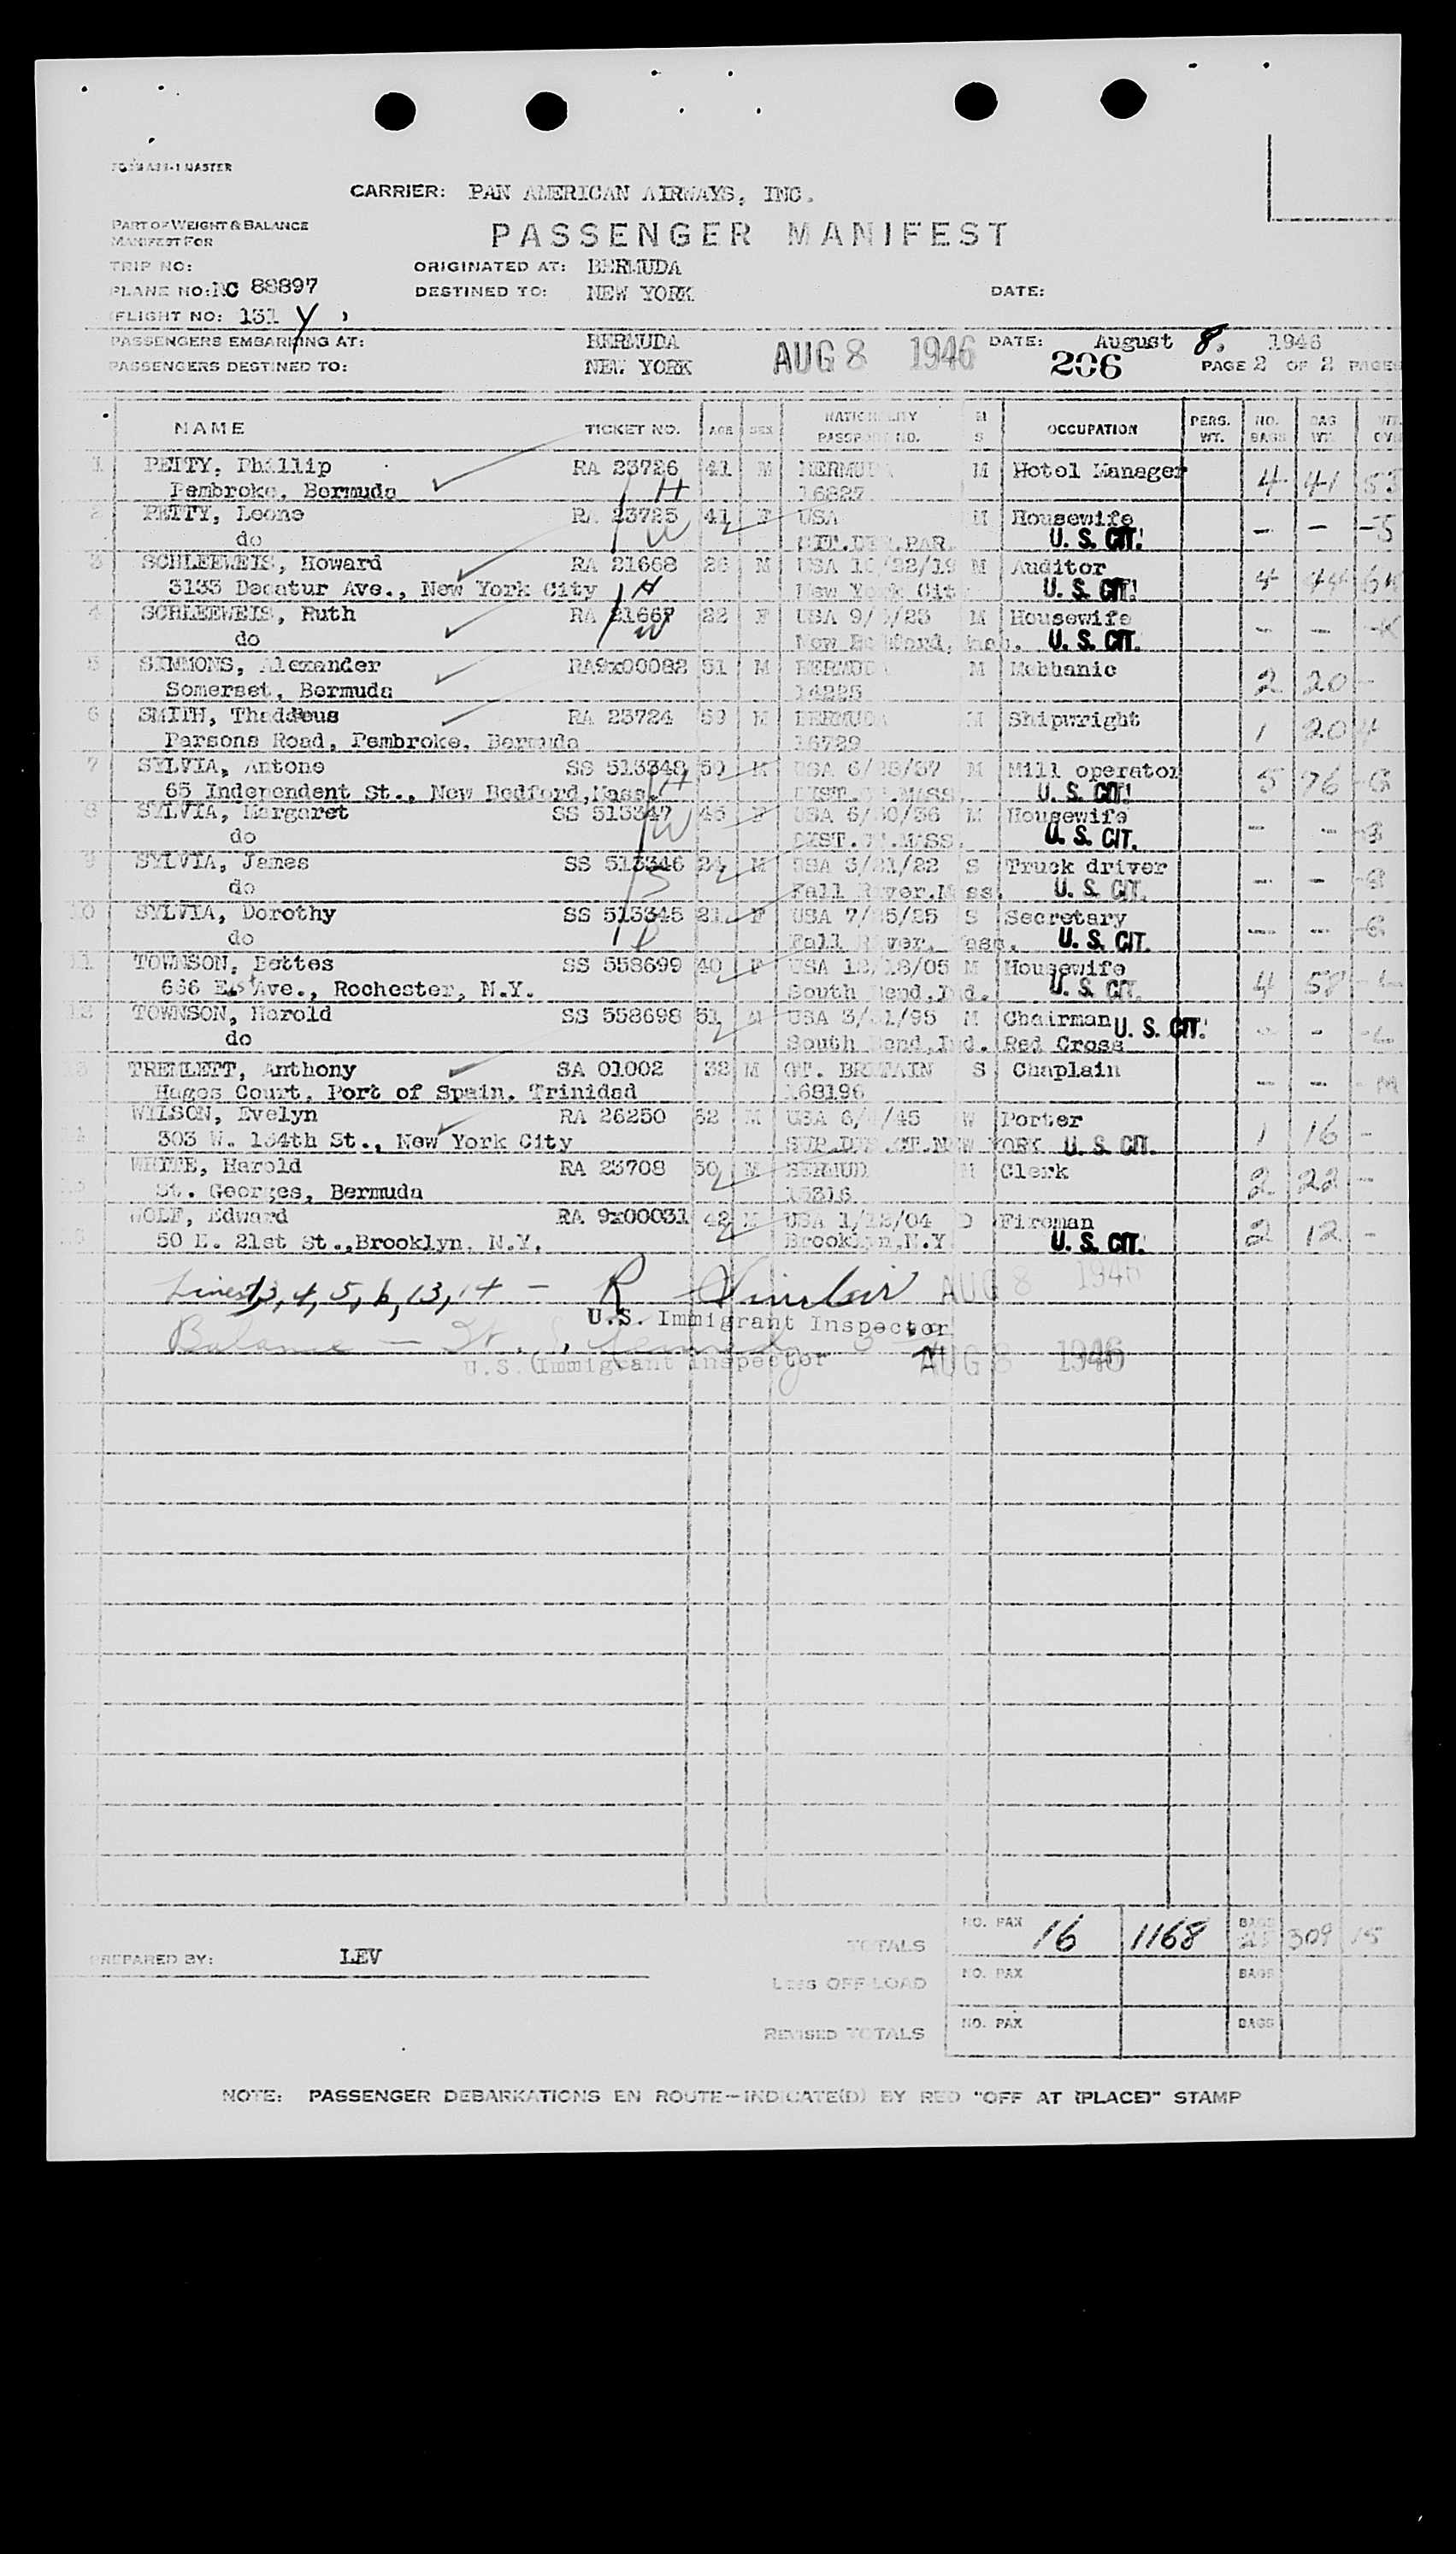 CARRIER: PAN AMERICAN AIRWAYS, INC.
PART OF WEIGHT & BALANCE
MANIFEST FOR
PASSENGER MANIFEST
TRIP NO: ORIGINATED AT: BERMUDA
PLANE NO: NC 88897 DESTINED TO: NEW YORK DATE:
(FLIGHT NO: 131 Y )
PASSENGERS EMBARKING AT: BERMUDA AUG 8 1946 DATE: August 8, 1946
PASSENGERS DESTINED TO: NEW YORK 206 PAGE 2 OF 2 PAGES
NAME TICKET NO. AGE SEX NATIONALITY PASSPORT NO. M S OCCUPATION PERS. WT. NO. BAGS BAG WT.
1 PETTY, Phillip RA 23726 41 M BERMUDA M Hotel Manager 4 41
Pembroke, Bermuda H 16827
2 PETTY, Leone RA 23725 41 F USA M Housewife - -
do W U. S. CIT.
3 SCHLEEWEIS, Howard RA 21668 26 M USA 10/22/19 M Auditor 4 44
3133 Decatur Ave., New York City H New York City U. S. CIT.
4 SCHLEEWEIS, Ruth RA 21667 22 F USA M Housewife - -
do W New Bedford, U. S. CIT.
5 SIMMONS, Alexander RA9x00082 51 M BERMUDA M Mebhanic 2 20 -
Somerset, Bermuda 14225
6 SMITH, Thaddeus RA 23724 59 M BERMUDA M Shipwright 1 20
Parsons Road, Pembroke, Bermuda 16729
7 SYLVIA, Antone SS 513348 50 M USA M Mill operator 5 76
65 Independent St., New Bedford, Mass. H DIST. MASS. U. S. CIT.
8 SYLVIA, Margaret SS 513347 45 F USA 6/30/36 M Housewife - -
do W DIST. MASS. U. S. CIT.
9 SYLVIA, James SS 513346 24 M USA 3/21/22 S Truck driver - -
do S Fall River, Mass. U. S. CIT.
10 SYLVIA, Dorothy SS 513345 21 F USA 7/25/25 S Secretary - -
do D Fall River, Mass. U. S. CIT.
11 TOWNSON, Bettes SS 558699 40 F USA 12/18/05 M Housewife 4 58
666 East Ave., Rochester, N.Y. South Bend, Ind. U. S. CIT.
12 TOWNSON, Harold SS 558698 51 M USA 3/31/95 M Chairman U. S. CIT. - -
do South Bend, Ind. Red Cross
TREMLETT, Anthony SA 01002 32 M GT. BRITAIN S Chaplain - -
Hages Court, Port of Spain, Trinidad 168196
WILSON, Evelyn RA 26250 62 M USA W Porter 1 16 -
303 W. 154th St., New York City NEW YORK U. S. CIT.
WHITE, Harold RA 23708 50 M BERMUDA M Clerk 2 22 -
St. Georges, Bermuda
WOLF, Edward RA 9x00031 42 M USA 1/12/04 D Fireman 2 12 -
50 E. 21st St., Brooklyn, N.Y. Brooklyn, N.Y. U. S. CIT.
Lines 1, 3, 4, 5, 6, 13, 14 - R Sinclair AUG 8 1946
U.S. Immigrant Inspector
Balance -
U.S. Immigrant Inspector AUG 8 1946
TOTALS NO. PAX 16 1168 BAGS 309 15
PREPARED BY: LEV
LESS OFF LOAD NO. PAX BAGS
REVISED TOTALS NO. PAX BAGS
NOTE: PASSENGER DEBARKATIONS EN ROUTE—INDICATE(D) BY RED "OFF AT (PLACE)" STAMP